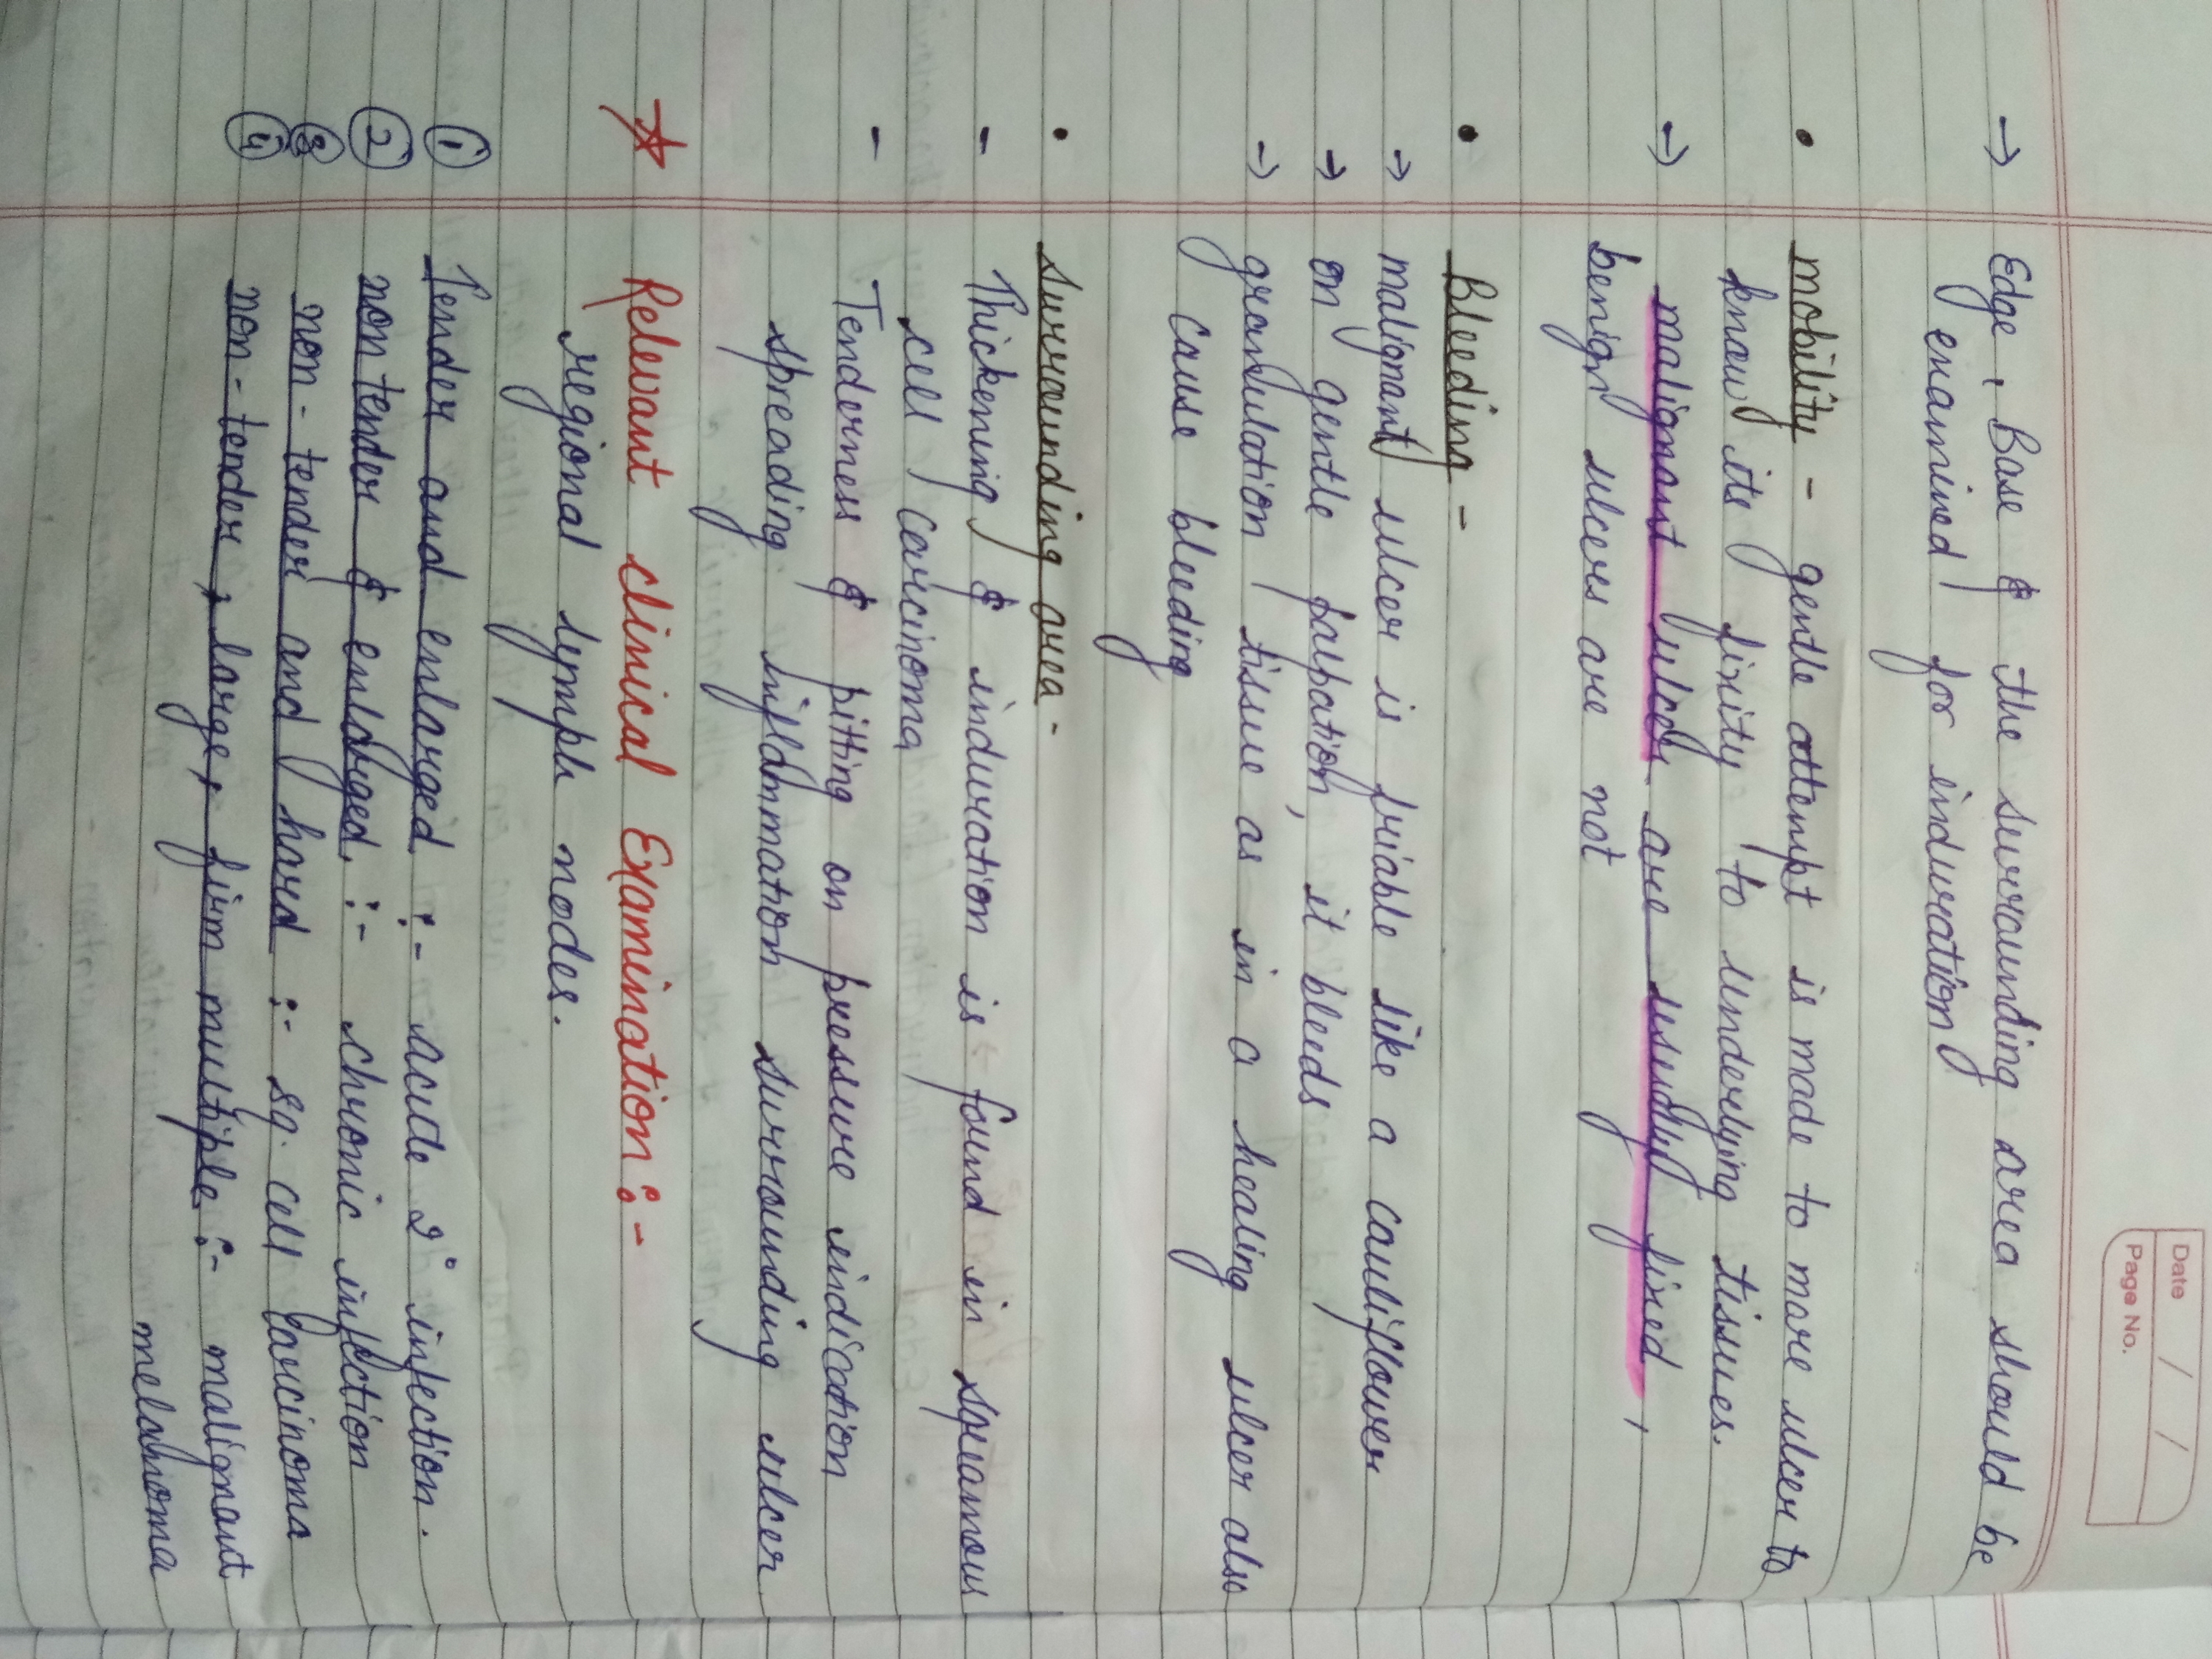 Date / /
Page No.
→ Edge, Base & the surrounding area should be
examined for induration
• mobility - gentle attempt is made to move ulcer to
know its fixity to underlying tissues.
→ malignant ulcer are usually fixed,
benign ulcers are not
• Bleeding -
→ malignant ulcer is friable like a cauliflower
→ on gentle palpation, it bleeds
→ granulation tissue as in a healing ulcer also
cause bleeding
• surrounding area -
- Thickening & induration is found in squamous
cell carcinoma
- Tenderness & pitting on pressure indication
spreading inflammation surrounding ulcer
☆ Relevant clinical Examination :-
regional lymph nodes.
① Tender and enlarged :- acute 2° infection.
② non tender & enlarged :- chronic infection
③ non-tender and hard :- sq. cell carcinoma
④ non-tender, large, firm multiple :- malignant
melanoma